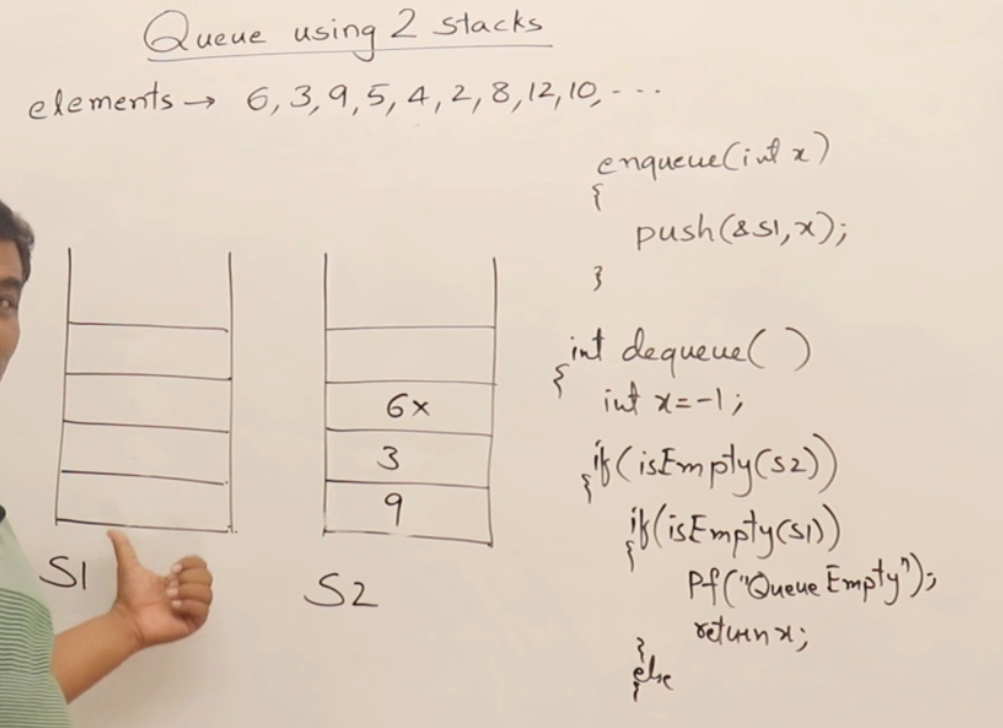 Queue using 2 stacks
elements → 6, 3, 9, 5, 4, 2, 8, 12, 10, - - -
enqueue(int x)
{
push(&S1, x);
}
int dequeue( )
{
int x=-1;
if(isEmpty(S2))
{
if(isEmpty(S1))
{
Pf("Queue Empty");
return x;
}
else
{
6x
3
9
S1
S2